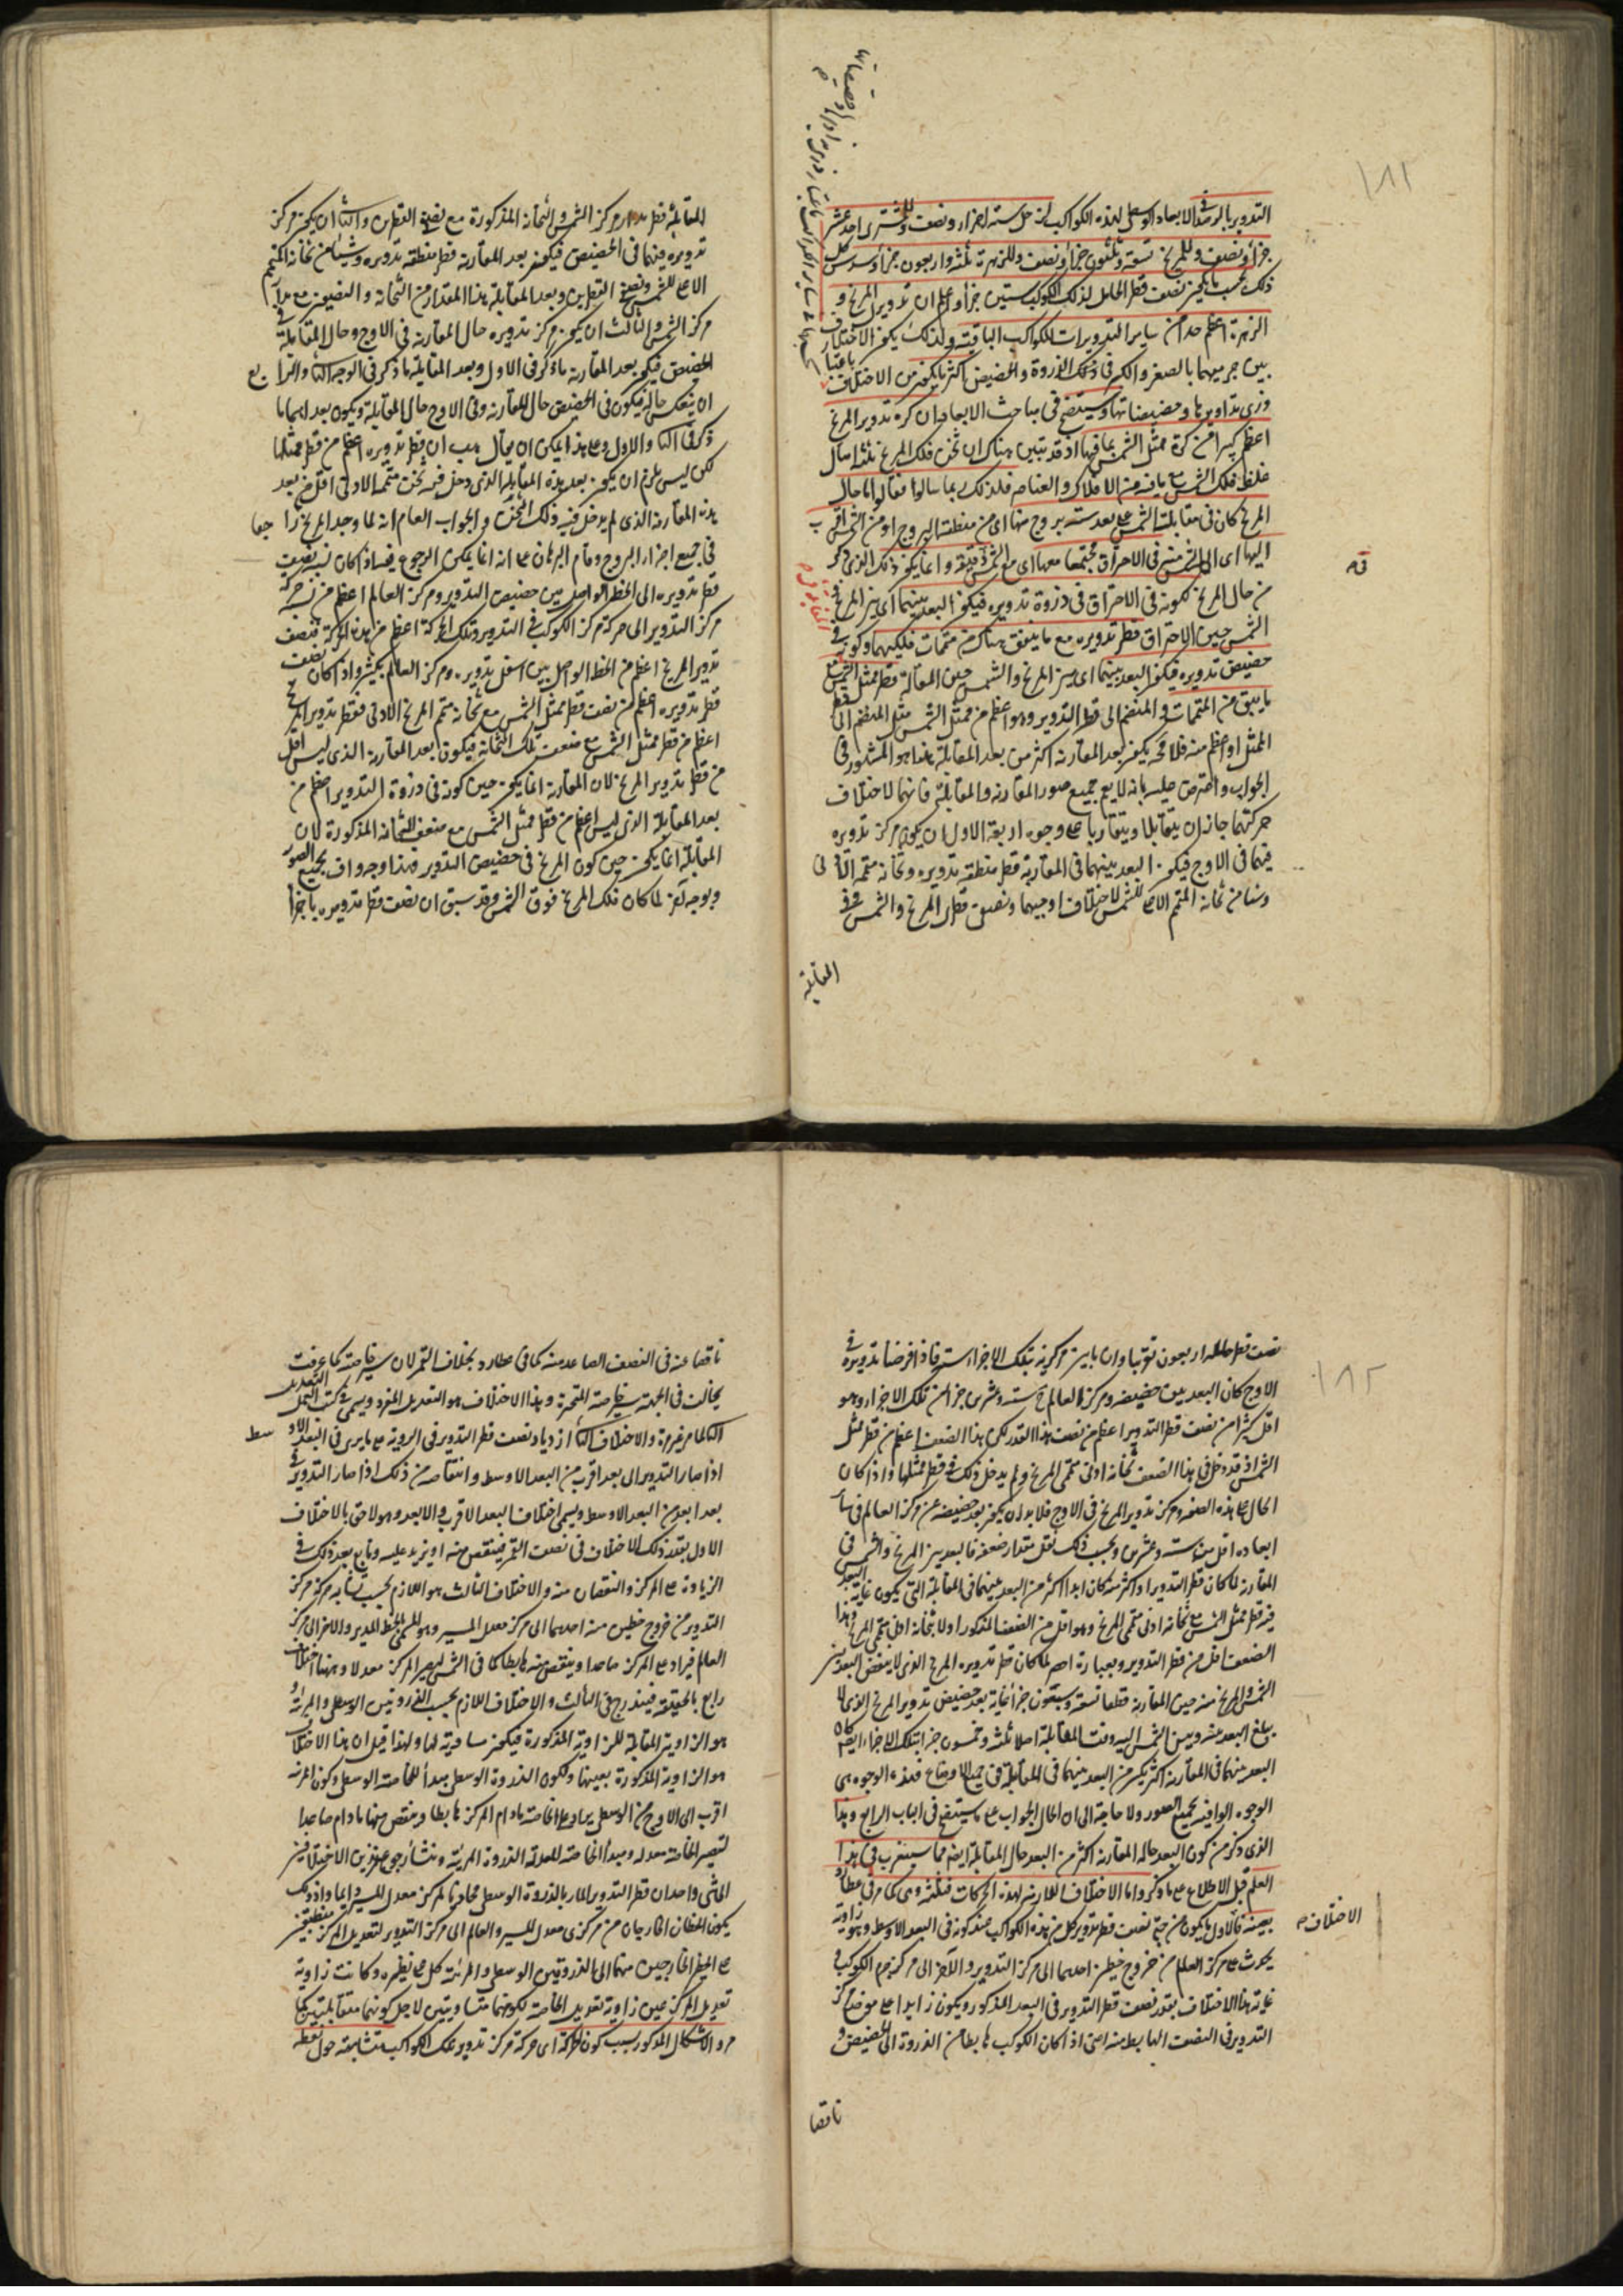 ١٨١
التدوير بالرصد في الابعاد الوسطى لهذه الكواكب لزحل ستة اجزاء ونصف وللمشترى احد عشر
جزأ ونصف وللمريخ تسعة وثلثون جزأ ونصف وللزهرة ثلثة واربعون جزأ وسدس كل
ذلك بحسب ما يكون نصف قطر الحامل لذلك الكوكب ستين جزأ واعلم ان تدوير المريخ و
الزهرة اعظم جدا من ساير التدويرات للكواكب الباقية ولذلك يكون الاختلاف
بين جرميهما بالصغر والكبر في ذلك الذروة والحضيض اكثر ما يكون من الاختلاف باعتبار
ذرى تداويرها وحضيضاتها وسيتضح في مباحث الابعاد ان كرة تدوير المريخ
اعظم كثيرا من كرة ممثل الشمس بما فيها اذ قد تبين هناك ان ثخن فلك المريخ ثلثة امثال
غلظ فلك الشمس مع ما فيه من الافلاك والعناصر فلذلك ربما سالوا فقالوا ما حال
المريخ كان في مقابلة الشمس على بعد ستة بروج منها اى من منطقة البروج او من الشمس اقرب
اليها اى الى الشمس منه في الاحتراق مجتمعا معها اى مع الشمس في دقيقة وانما يكون ذلك الذي ذكر
من حال المريخ لكونه في الاحتراق في ذروة تدويره فيكون البعد بينهما اى بين المريخ و
الشمس حين الاحتراق قطر تدويره مع ما يتفق هناك من متممات فلكيهما وكونه في
حضيض تدويره فيكون البعد بينهما اى بين المريخ والشمس حين المقابلة قطر ممثل الشمس مع
ما يبقى من المتممات والمنضم الى قطر التدوير وهو اعظم من ممثل الشمس مثل المنضم الى قطر
الممثل او اعظم منه فلا محة يكون بعد المقارنة اكثر من بعد المقابلة هذا هو المشهور في
الجواب واعترض عليه بانه لا يعم جميع صور المقارنة والمقابلة فانهما لاختلاف
حركتهما جاز ان يتقابلا ويتقاربا على وجوه اربعة الاول ان يكون مركز تدويره
فيهما في الاوج فيكون البعد بينهما في المقارنة قطر منطقة تدويره وثخانة متممه الادنى
وشيئا من ثخانة المتمم الاعلى للشمس لاختلاف اوجيهما ونصفى قطرى المريخ والشمس وفي
المقابلة
المقابلة قطر مدار مركز الشمس والثخانة المذكورة مع نصفى القطرين والثانى ان يكون مركز
تدويره فيهما في الحضيض فيكون بعد المقارنة قطر منطقة تدويره وشيئا من ثخانة المتمم
الاعلى للشمس ونصفى القطرين وبعد المقابلة هذا المقدار من الثخانة والنصفين مع مدار
مركز الشمس والثالث ان يكون مركز تدويره حال المقارنة في الاوج وحال المقابلة في
الحضيض فيكون بعد المقارنة ما ذكر في الاول وبعد المقابلة ما ذكر في الوجه الثانى والرابع
ان ينعكس حاله فيكون في الحضيض حال المقارنة وفي الاوج حال المقابلة ويكون بعداهما ما
ذكر في الثانى والاول وعلى هذا يمكن ان يقال هب ان قطر تدويره اعظم من قطر ممثلها
لكن ليس يلزم ان يكون بعد هذه المقابلة الذي دخل فيه ثخن متممه الادنى اقل من بعد
هذه المقارنة الذي لم يدخل فيه ذلك الثخن والجواب العام انه لما وجد المريخ راجعا
في جميع اجزاء البروج وقام البرهان على انه انما يمكن الرجوع فيما اذا كان نسبة نصف
قطر تدويره الى الخط الواصل بين حضيض التدوير ومركز العالم اعظم من نسبة حركة
مركز التدوير الى حركة مركز الكوكب في التدوير وتلك الحركة اعظم من هذه الحركة فنصف
تدوير المريخ اعظم من الخط الواصل بين اسفل تدويره ومركز العالم بكثير واذا كان نصف
قطر تدويره اعظم من نصف قطر ممثل الشمس مع ثخانة متمم المريخ الادنى فقطر تدوير المريخ
اعظم من قطر ممثل الشمس مع ضعف تلك الثخانة فيكون بعد المقارنة الذي ليس اقل
من قطر تدوير المريخ لان المقارنة انما يكون حين كونه في ذروة التدوير اعظم من
بعد المقابلة الذي ليس اعظم من قطر ممثل الشمس مع ضعف الثخانة المذكورة لان
المقابلة انما يكون حين كون المريخ في حضيض التدوير فهذا وجه واف بجميع الصور
وبوجه آخر لما كان فلك المريخ فوق الشمس وقد سبق ان نصف قطر تدويره باجزاء
١٨٢
نصف قطر حامله اربعون تقريبا وان ما بين مركزيه بتلك الاجزاء ستة فاذا فرضنا تدويره في
الاوج كان البعد بين حضيضه ومركز العالم ستة وعشرين جزأ من تلك الاجزاء وهو
اقل كثيرا من نصف قطر التدوير اعظم من نصف هذا القدر لكن هذا الضعف اعظم من قطر ممثل
الشمس اذ قد دخل في هذا الضعف ثخانة ادنى متممى المريخ ولم يدخل ذلك في قطر ممثلها واذا كان
الحال على هذه الصفة ومركز تدوير المريخ في الاوج فلا بد ان يكون بعد حضيضه عن مركز العالم في سائر
ابعاده اقل من ستة وعشرين وبحسب ذلك يقل مقدار ضعفه فالبعد بين المريخ والشمس في
المقارنة لما كان قطر التدوير او اكثر منه كان ابدا اكثر من البعد بينهما في المقابلة التى يكون غاية البعد
فيه قطر ممثل الشمس مع ثخانة ادنى متممى المريخ وهو اقل من الضعف المذكور اولا بثخانة ادنى متممى المريخ وهذا
الضعف اقل من قطر التدوير وبعبارة اخصر لما كان قطر تدويره المريخ الذي لا ينقص البعد بين
الشمس والمريخ منه حين المقارنة قطعا تسعة وسبعون جزأ وغاية بعد حضيض تدوير المريخ الذي لا
يبلغ البعد منه وبين الشمس اليه وقت المقابلة اصلا ثلثة وخمسون جزأ بتلك الاجزاء ايضا كان
البعد بينهما في المقارنة اكثر بكثير من البعد بينهما في المقابلة في جميع الاوضاع فهذه الوجوه هى
الوجوه الوافية بجميع الصور ولا حاجة الى ان احال الجواب على ما سيتضح في الباب الرابع وهذا
الذي ذكر من كون البعد حالة المقارنة اكثر من البعد حال المقابلة ايضا مما سيتغرب في هذا
العلم قبل الاطلاع على ما ذكر واما الاختلاف اللازمة لهذه الحركات فثلثة وهى كما مر في عطارد
الاختلاف
بعينه فالاول ما يكون من جهة نصف قطر تدوير كل من هذه الكواكب عند كونه في البعد الاوسط وهو زاوية
يحدث على مركز العالم من خروج خطين احدهما الى مركز التدوير والآخر الى مركز جرم الكوكب و
غاية هذا الاختلاف بقدر نصف قطر التدوير في البعد المذكور ويكون زايدا على موضع مركز
التدوير في النصف الهابط منه اعنى اذا كان الكوكب هابطا من الذروة الى الحضيض و
ناقصا
ناقصا عنه في النصف الصاعد منه كما في عطارد وبخلاف القمر لان سير خاصته كما عرفت
يخالف في الجهة سير خاصة المتحيرة وهذا الاختلاف هو التعديل المفرد ويسمى في كتب العمل التعديل
الثانى كما مر غير مرة والاختلاف الثانى ازدياد نصف قطر التدوير في الروية على ما يرى في البعد الاوسط
اذا صار التدوير الى بعد اقرب من البعد الاوسط وانتقاصه من ذلك اذا صار التدوير في
بعد ابعد من البعد الاوسط ويسمى اختلاف البعد الاقرب والابعد وهو لاحق بالاختلاف
الاول بقدر ذلك الاختلاف في نصف القطر فينقص منه او يزيد عليه وتابع بعد ذلك في
الزيادة على المركز والنقصان منه والاختلاف الثالث هو اللازم بحسب تشابه حركة مركز
التدوير من خروج خطين منه احدهما الى مركز معدل المسير وهو المسمى بالخط المدير والاخر الى مركز
العالم فيزاد على المركز صاعدا وينقص منه هابطا كما في الشمس ليصير المركز معدلا وههنا اختلاف
رابع بالحقيقة فيندرج في الثالث والاختلاف اللازم بحسب الذروتين الوسطى والمرئية و
هو الزاوية المقابلة للزاوية المذكورة فيكون مساوية لها ولهذا قيل ان هذا الاختلاف
هو الزاوية المذكورة بعينها ولكون الذروة الوسطى مبدأ للخاصة الوسطى وكون المرئية
اقرب الى الاوج من الوسطى يزاد على الخاصة ما دام المركز هابطا وينقص منها ما دام صاعدا
لتصير الخاصة معدلة ومبدأ الخاصة المعدلة الذروة المرئية ومنشأ رجوع هذين الاختلافين
الى شئ واحد ان قطر التدوير المار بالذروة الوسطى محاذ لمركز معدل المسير دايما واذ ذلك
يكون الخطان الخارجان من مركزى معدل المسير والعالم الى مركز التدوير لتعديل المركز منطبقين
على الخطين الخارجين منهما الى الذروتين الوسطى والمرئية كل على نظيره وكانت زاوية
تعديل المركز عين زاوية تعديل الخاصة لكونهما متساويتين لاجل كونهما متقابلتين كما
مر والاشكال المذكور بسبب كون الحركة اى حركة مركز تدوير تلك الكواكب متشابهة حول نقطة